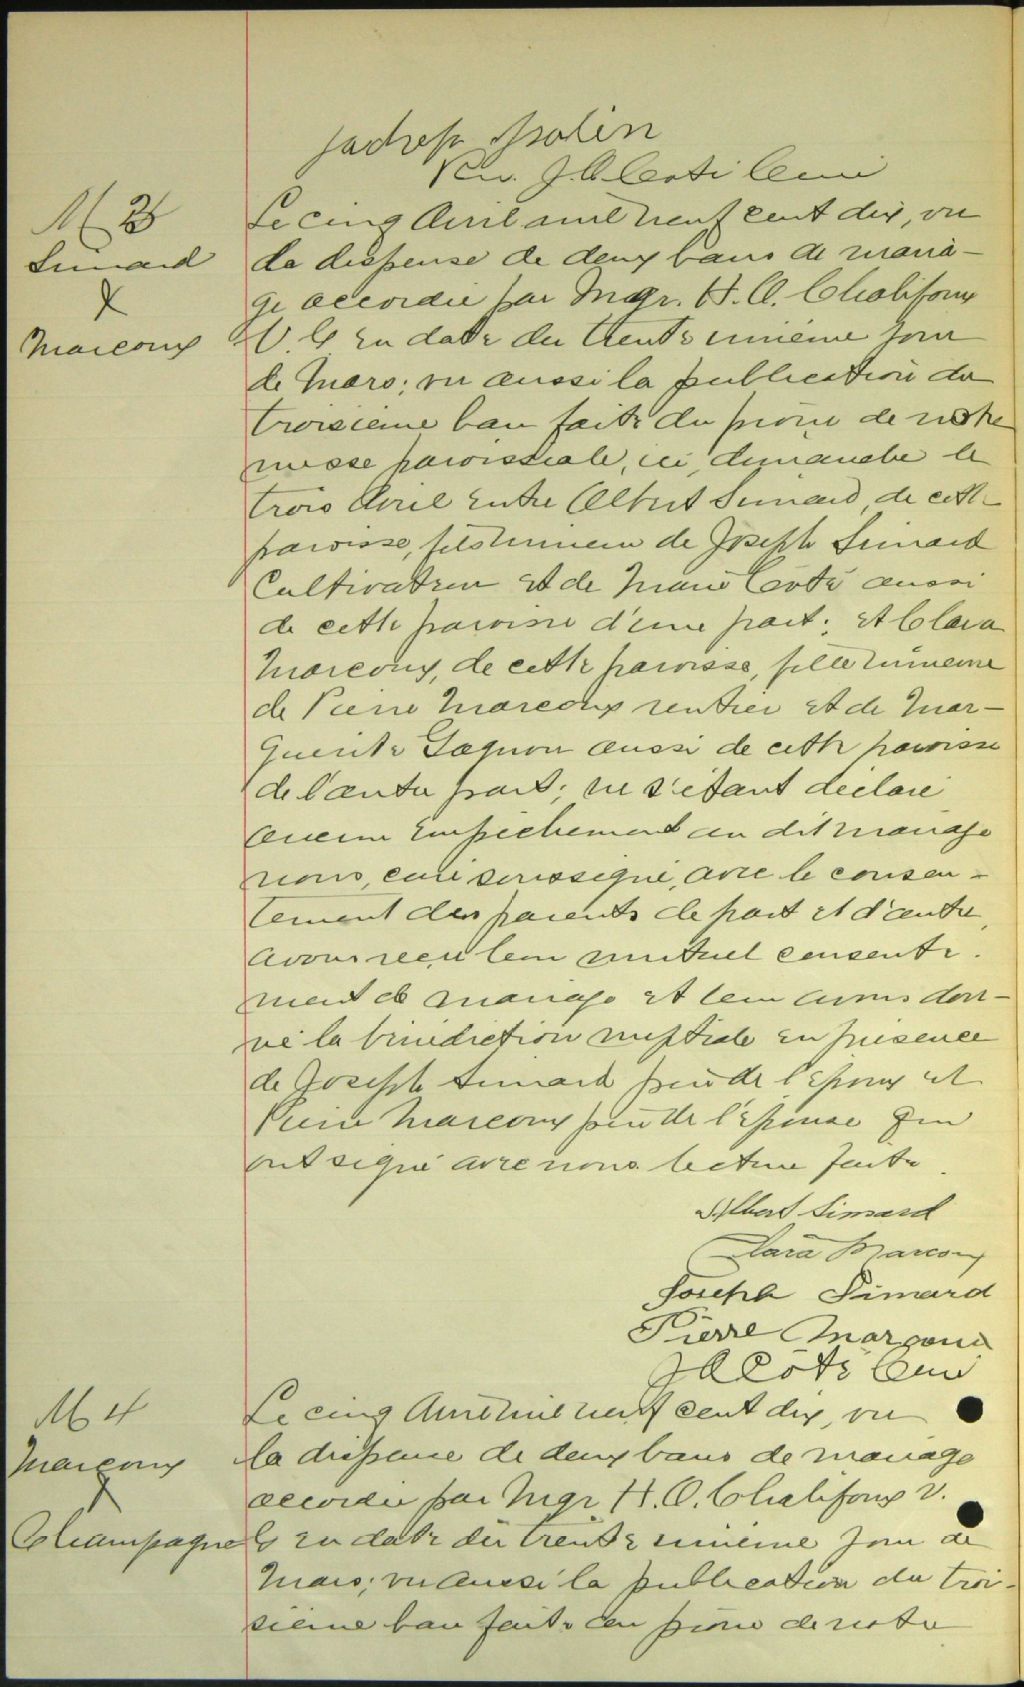 Rev. J. A. Coté Curé
M 3
Simard
&
Marcoux
Le cinq Avril mil neuf cent dix, vu
la dispense de deux bans de maria-
ge accordée par Mgr. H. O. Chalifoux
V. G en date du trente unième jour
de Mars; vu aussi la publication du
troisième ban faite au prône de notre
messe paroissiale, ici, dimanche le
trois Avril entre Albert Simard, de cette
paroisse, fils mineur de Joseph Simard
Cultivateur et de Marie Côté aussi
de cette paroisse d'une part; et Clara
Marcoux, de cette paroisse, fille mineure
de Pierre Marcoux rentier et de Mar-
guerite Gagnon aussi de cette paroisse
de l'autre part; ne s'étant déclaré
aucun empêchement au dit mariage
nous, curé soussigné, avec le consen-
tement des parents de part et d'autre,
avons reçu leur mutuel consente-
ment de mariage et leur avons don-
né la bénédiction nuptiale en présence
de Joseph Simard père de l'époux et
Pierre Marcoux père de l'épouse qui
ont signé avec nous. lecture faite.
Albert Simard
Clara Marcoux
Joseph Simard
Pierre Marcoux
J A Côté Curé
M 4
Marcoux
&
Champagne
Le cinq Avril mil neuf cent dix, vu
la dispense de deux bans de mariage
accordée par Mgr H. O. Chalifoux V.
G en date du trente unième jour de
Mars; vu aussi la publication du troi-
sième ban faite au prône de notre